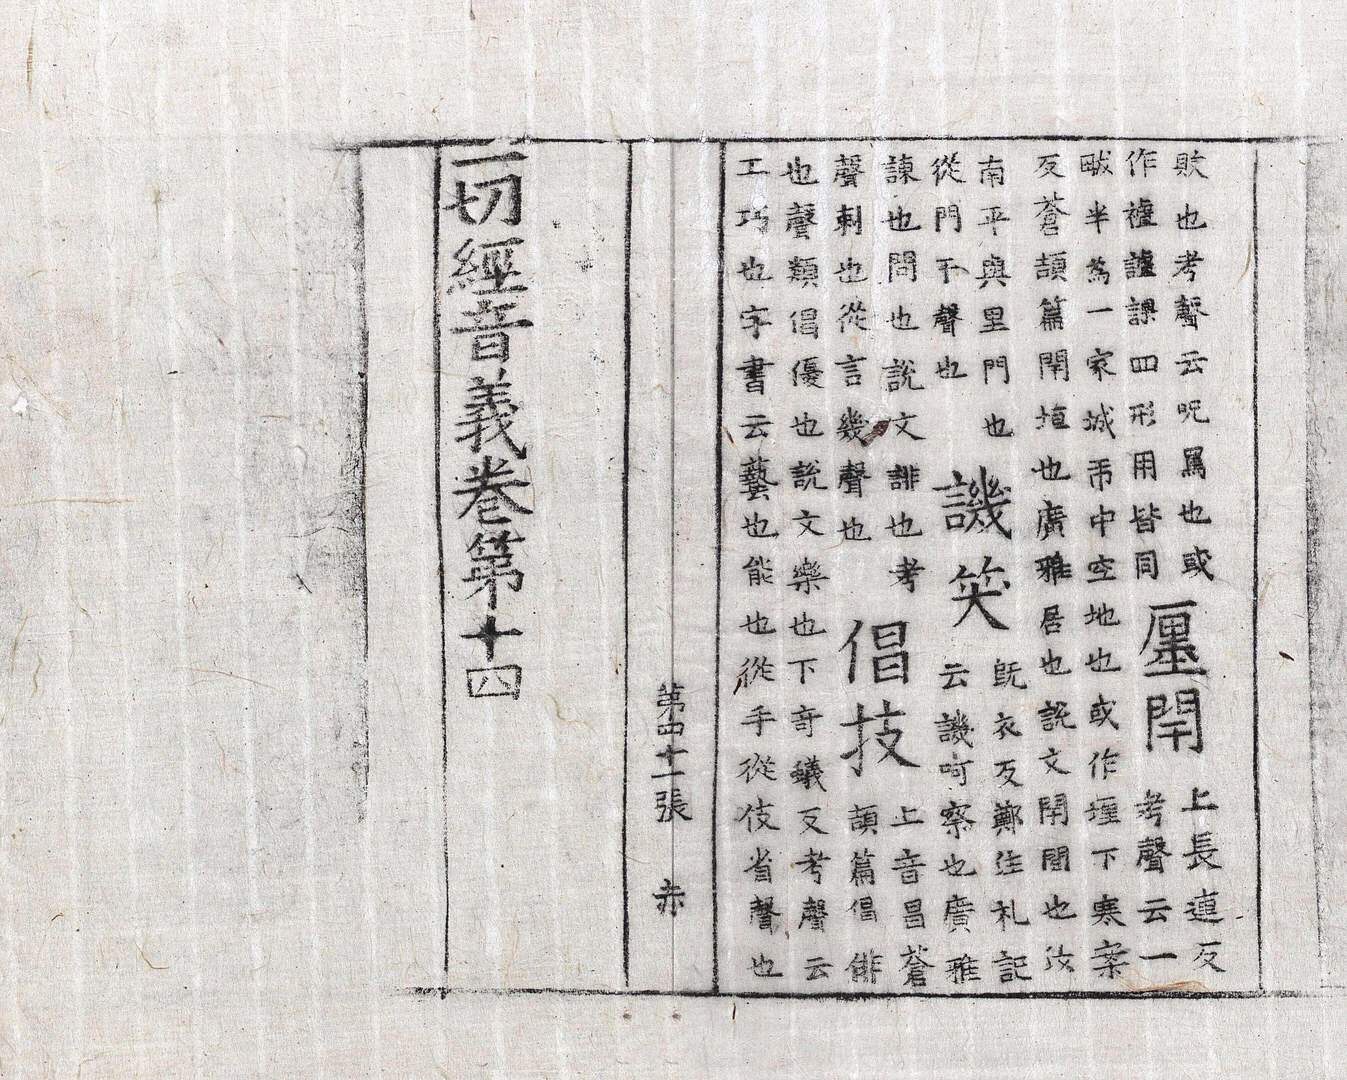 敗也考聲云呪罵也或
作四形用皆同
厘閈
上長連反
考聲云一
畝半為一家城帀中空地也或作㕓下寒案
反蒼頡篇閈垣也廣雅居也說文閈閭也汝
南平與里門也
從門干聲也
譏笑
既衣反鄭住礼記
云譏呵察也廣雅
諫也問也說文誹也考
聲刺也從言幾聲也
倡技
上音昌蒼
頡篇倡俳
也聲類倡優也說文樂也下竒蟻反考聲云
工巧也字書云藝也能也從手從伎省聲也
第四十一張 赤
一切經音義卷第十四